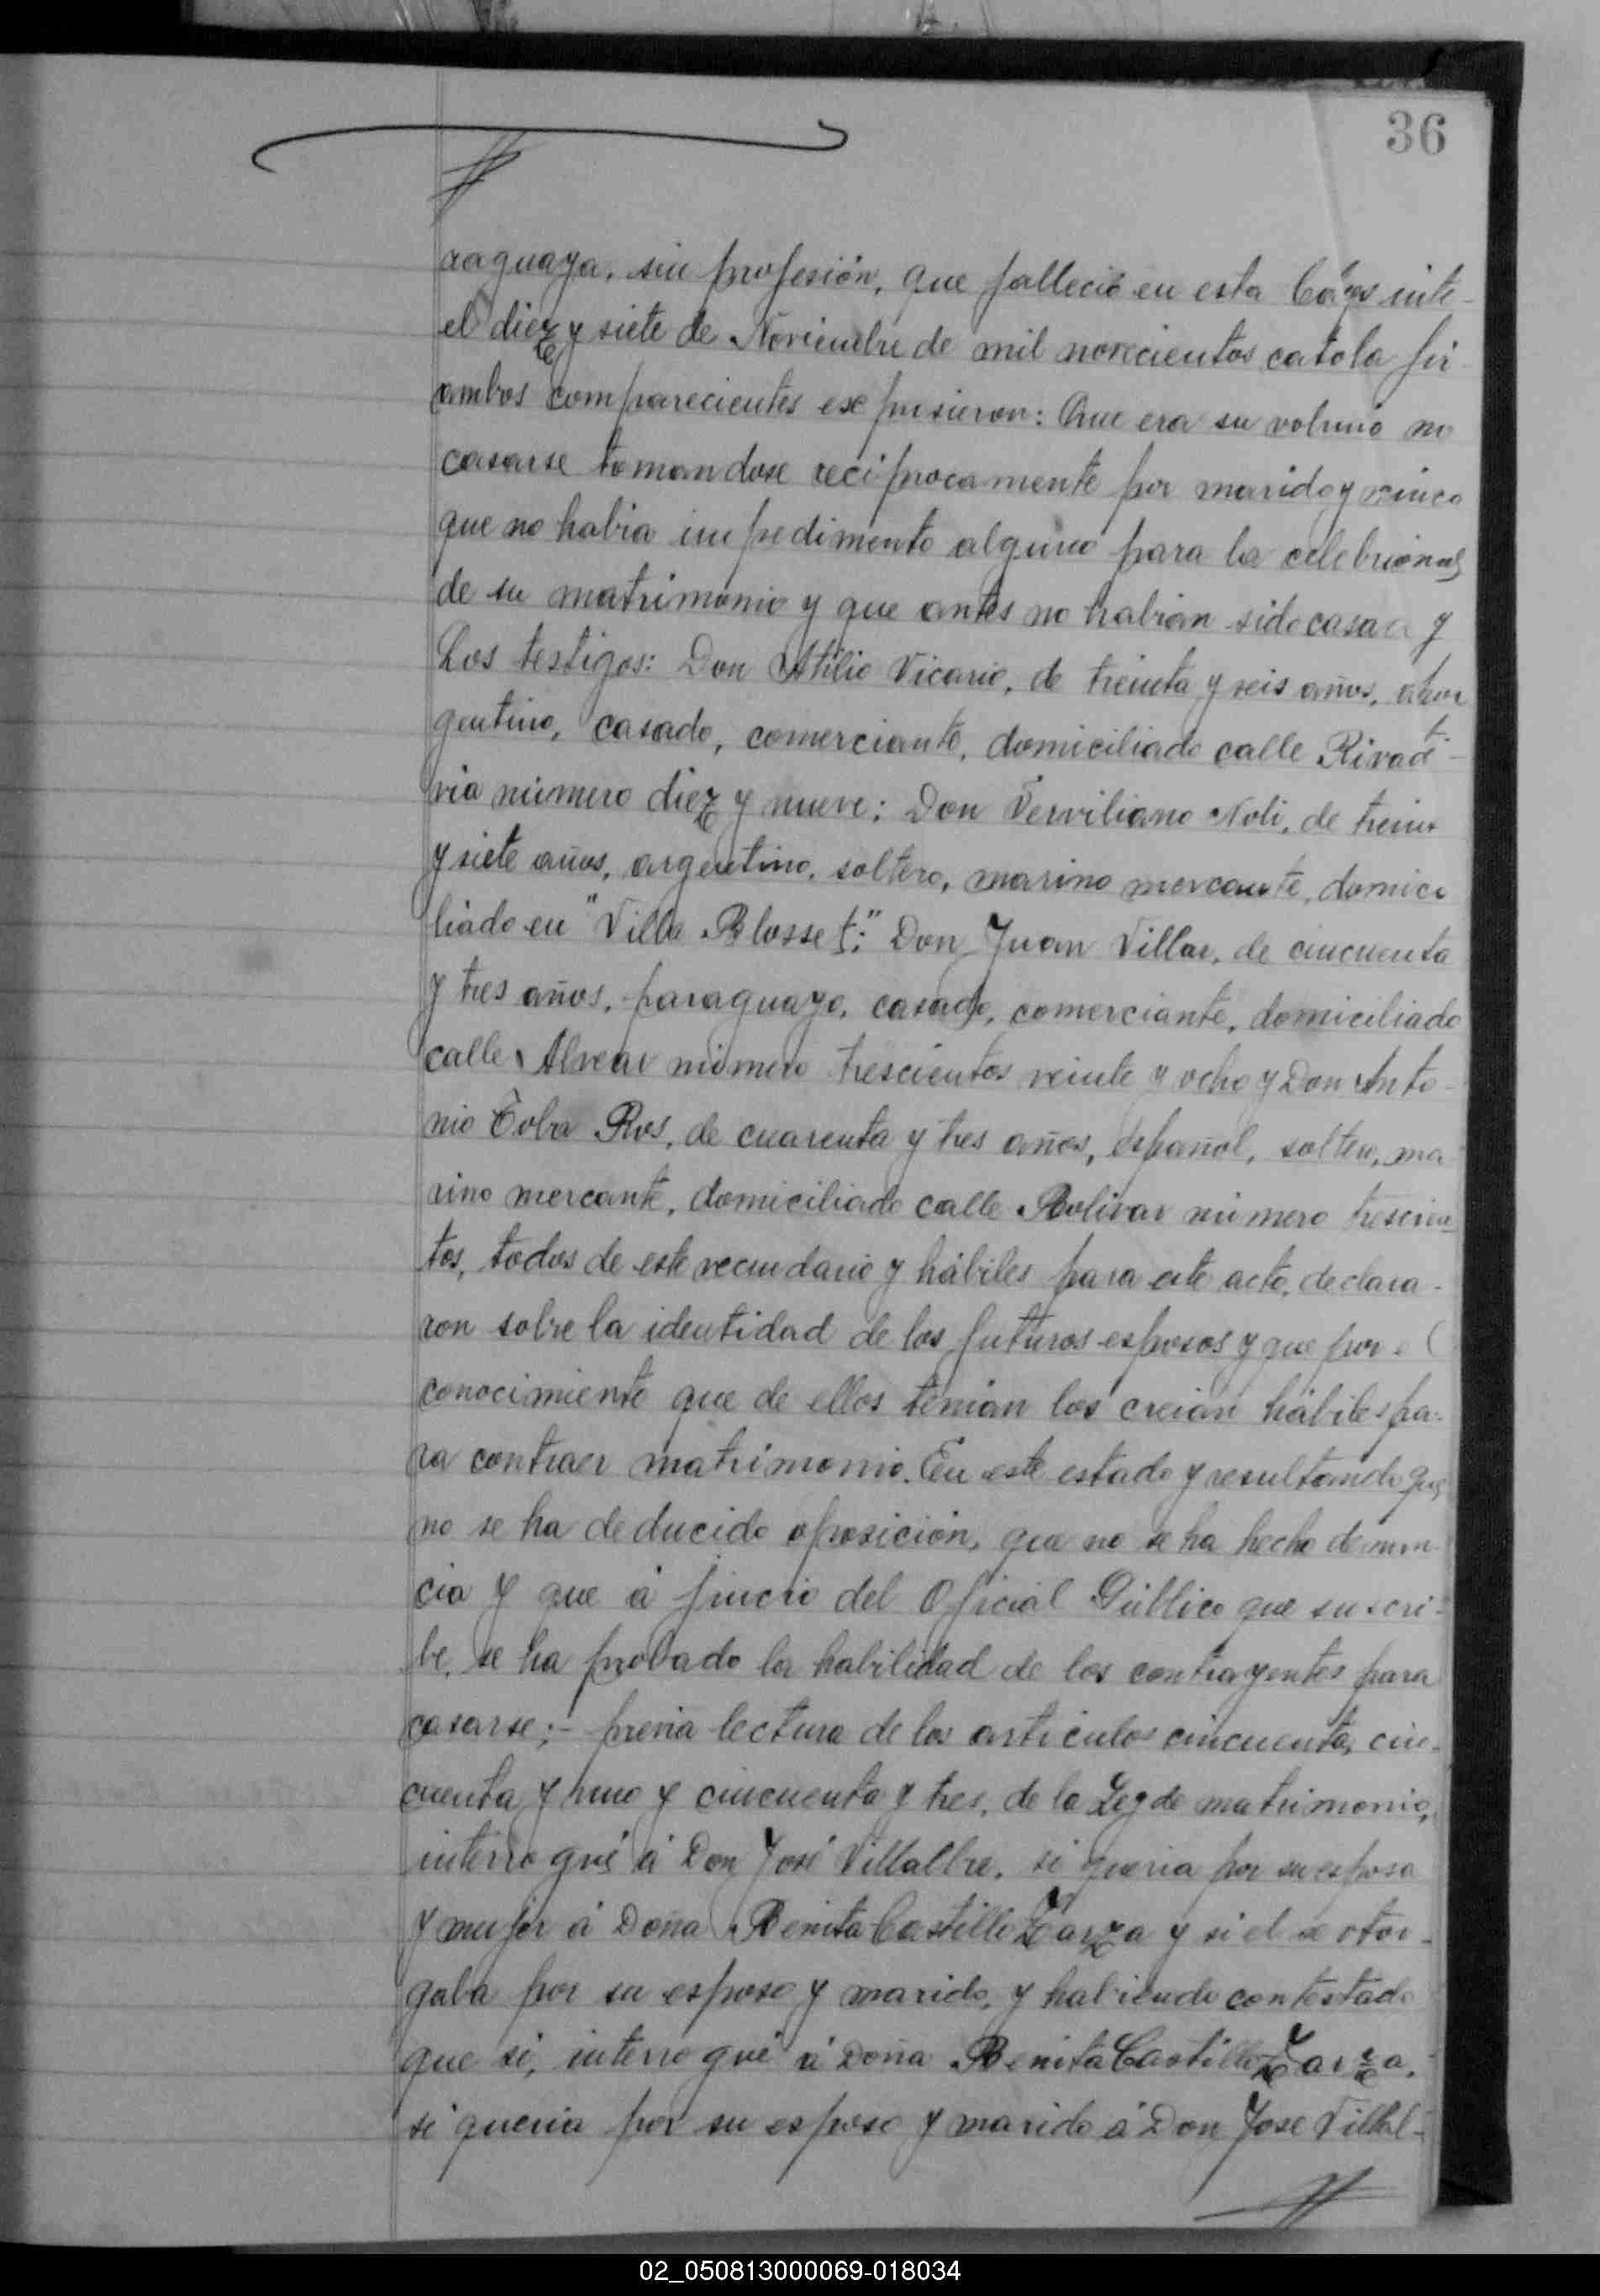 36
raguaya, sin profesión, que falleció en esta
el diez y siete de Noviembre de mil novecientos cato
ambos comparecientes expusieron: Que era su volun
casarse tomandose reciprocamente por marido y
que no habia impedimento alguno para la celebr
de su matrimonio y que antes no habian sido casa
Los testigos: Don Atilio Vicario, de treinta y seis años, a
gentino, casado, comerciante, domiciliado calle Rivad
via número diez y nueve; Don Verviliano Noli, de trein
y siete años, argentino, soltero, marino mercante, domici
liado en "Villa Blosset;" Don Juan Villar, de cincuenta
y tres años, paraguayo, casado, comerciante, domiciliado
calle Alvear número trescientos veinte y ocho y Don Anto-
nio Toba Ros, de cuarenta y tres años, español, soltero, ma
rino mercante, domiciliado calle Bolivar número trescien-
tos, todos de este vecindario y hábiles para este acto, declara-
ron sobre la identidad de los futuros esposos y que por el
conocimiento que de ellos tenian los creian hábiles pa-
ra contraer matrimonio. En este estado y resultando que
no se ha deducido oposición, que no se ha hecho denun-
cia y que á juicio del Oficial Público que suscri-
be, se ha probado la habilidad de los contrayentes para
casarse;- previa lectura de los articulos cincuenta, cin-
cuenta y uno y cincuenta y tres, de la Ley de matrimonio,
interrogué á Don José Villalba, si queria por su esposa
y mujer á Doña Benita Castillo Zarza y si el se otor-
gaba por su esposo y marido, y habiendo contestado
que si, interrogué á Doña Benita Castillo Zarza,
si queria por su esposo y marido á Don José Villal-
02_050813000069-018034